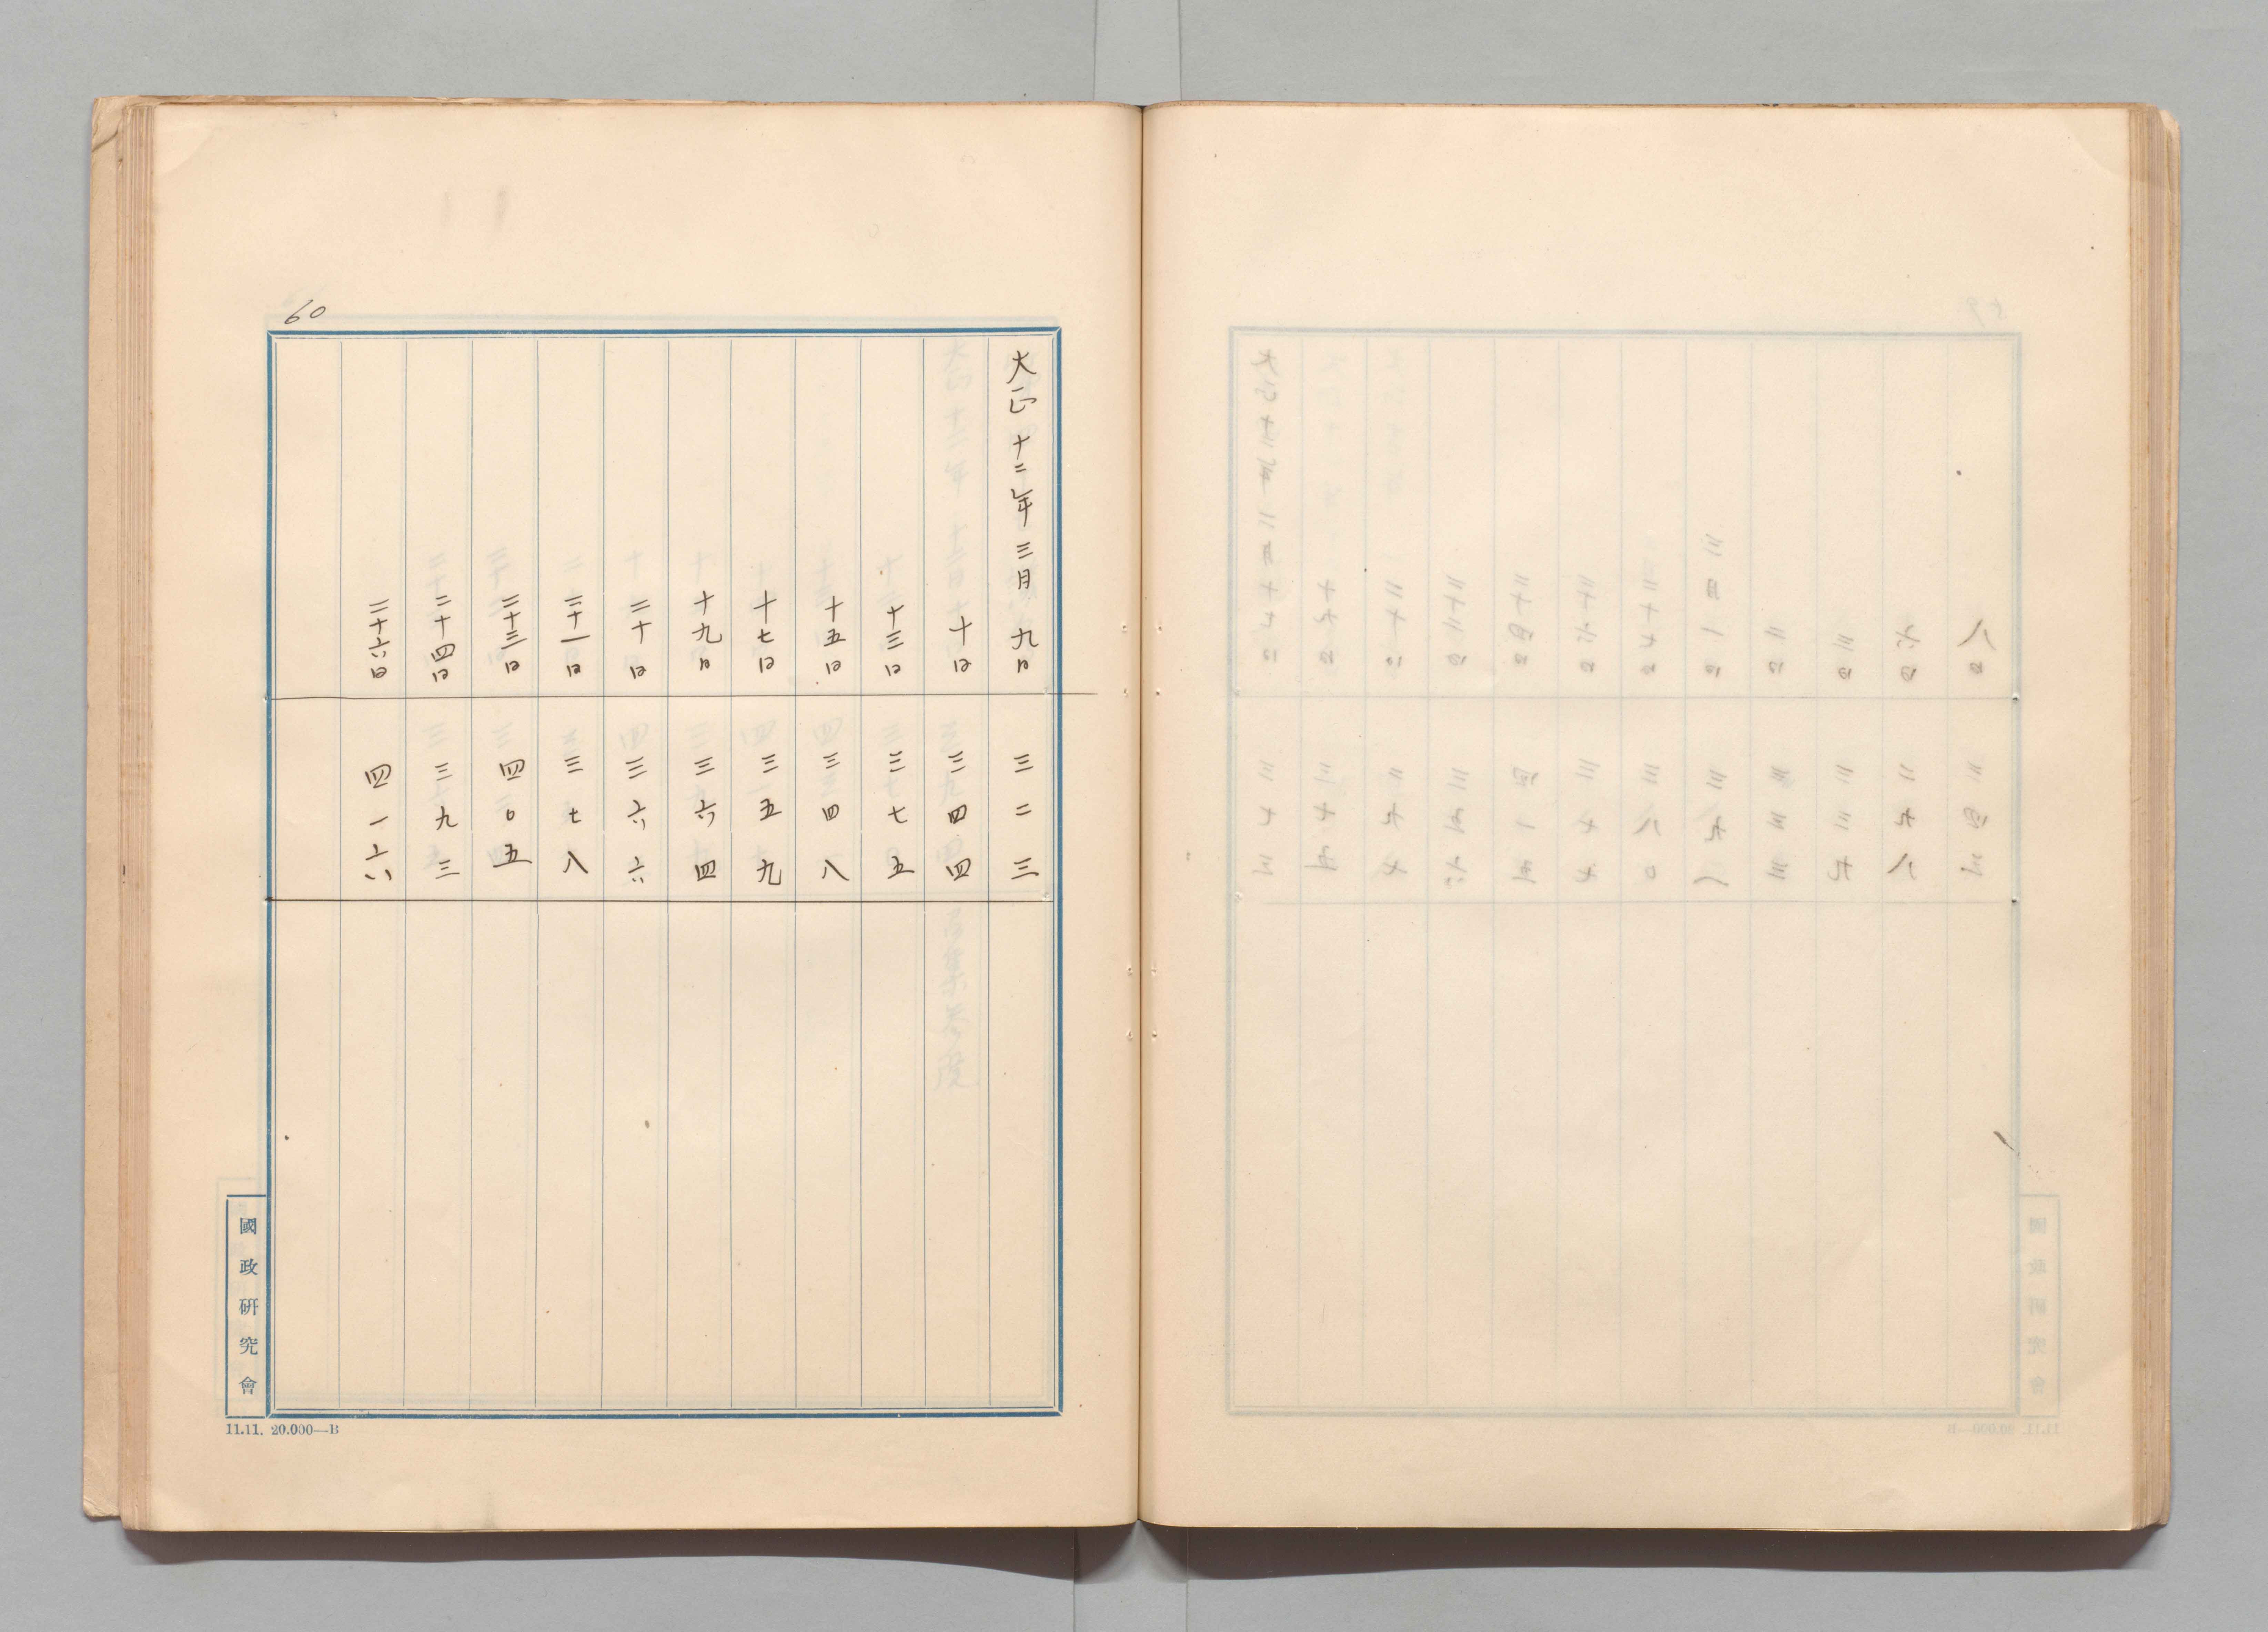 60
大正十二年三月九日 三二三
十日 三四四
十三日 三七五
十五日 三四八
十七日 三五九
十九日 三六四
二十日 三六六
二十一日 三七八
二十三日 四〇五
二十四日 三九三
二十六日 四一六
國政硏究會
11.11. 20.000—B